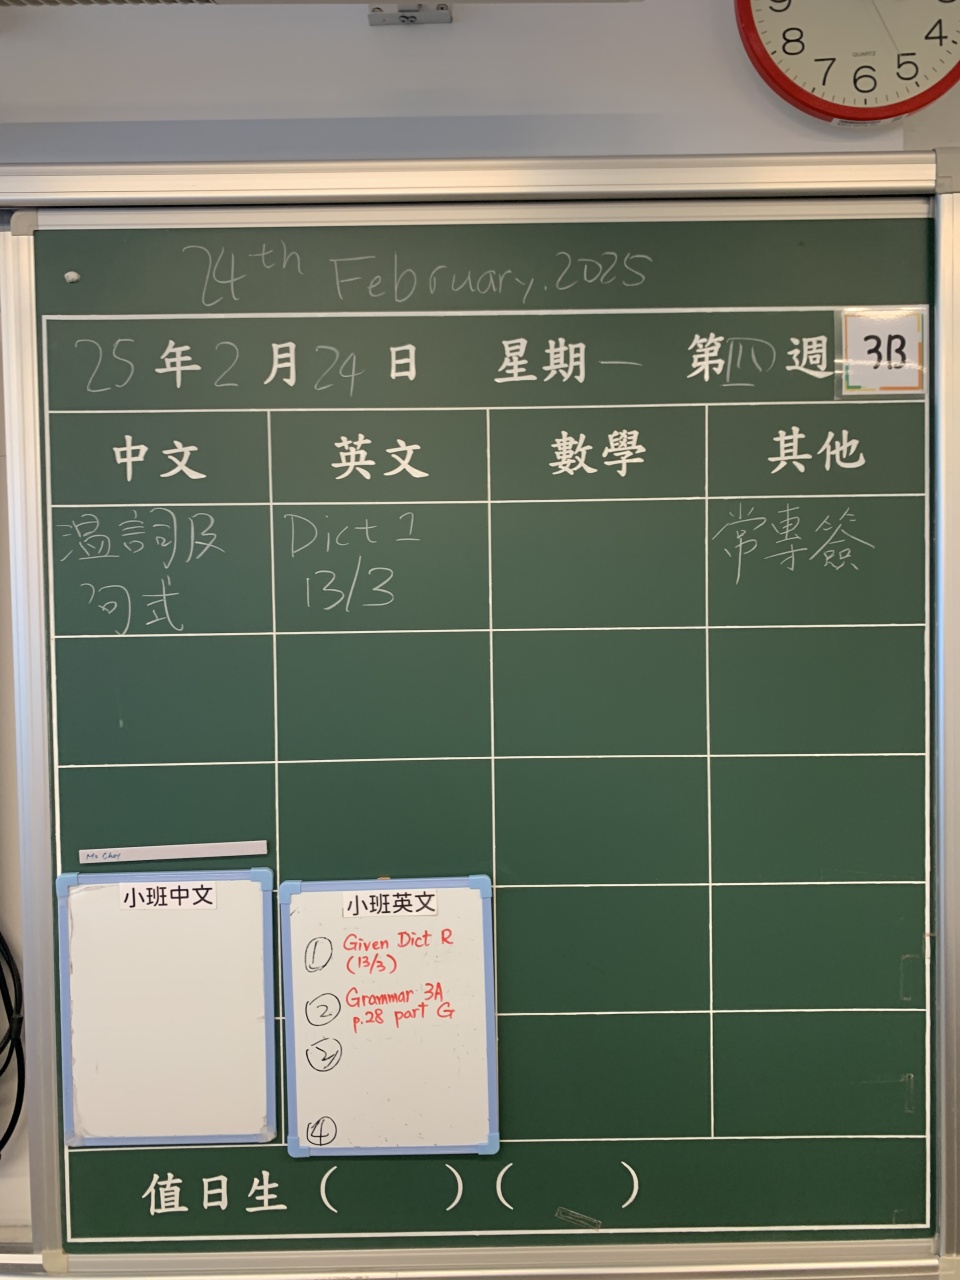 9
8
7
6
5
4
QUARTZ
24th February. 2025
25年2月24日 星期一 第四週 3B
中文 英文 數學 其他
温詞及
句式
Dict 1
13/3
常專簽
Ms Choy
小班中文
小班英文
① Given Dict R
(13/3)
② Grammar 3A
p.28 part G
③
④
值日生( )( )